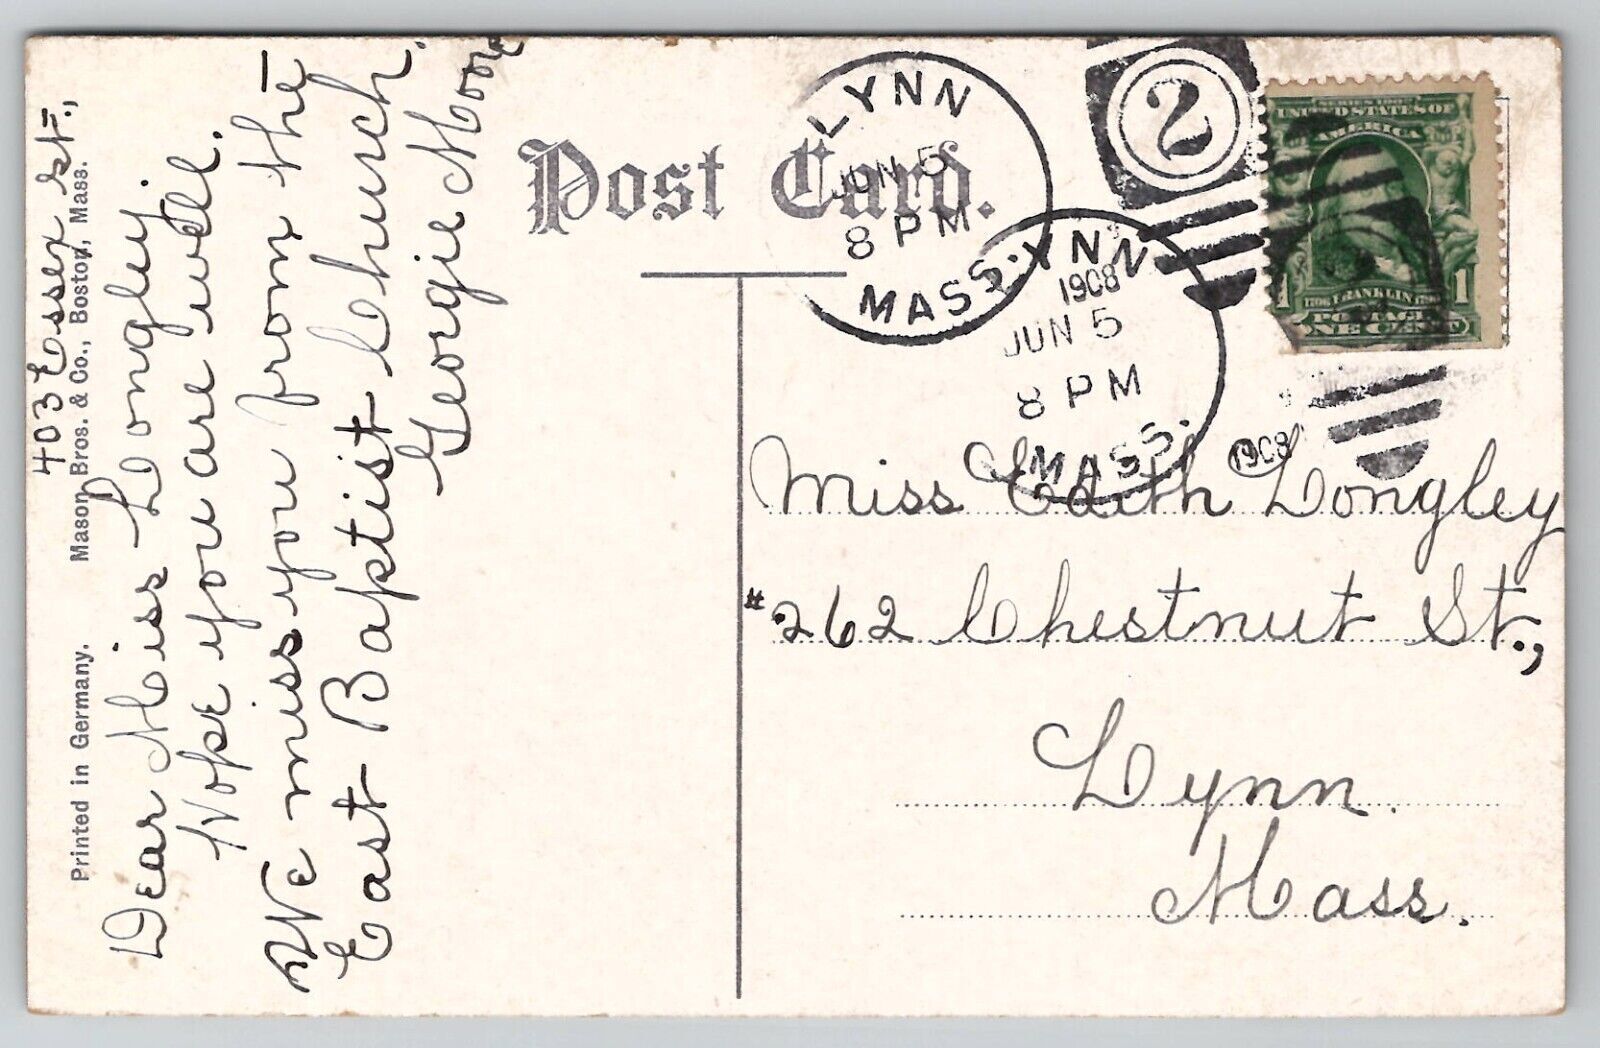 403 Essex St.,
Printed in Germany. Mason Bros. & Co., Boston, Mass.
Dear Miss Longley
Hope you are well.
We miss you from the
East Baptist Church.
Georgie Moore
Post Card.
LYNN
JUN 5
8 PM
MASS.
1908
LYNN
JUN 5
8 PM
MASS.
1908
2
SERIES 1902
UNITED STATES OF
AMERICA
1706 FRANKLIN 1790
POSTAGE
1 ONE CENT 1
Miss Edith Longley
#262 Chestnut St.,
Lynn.
Mass.